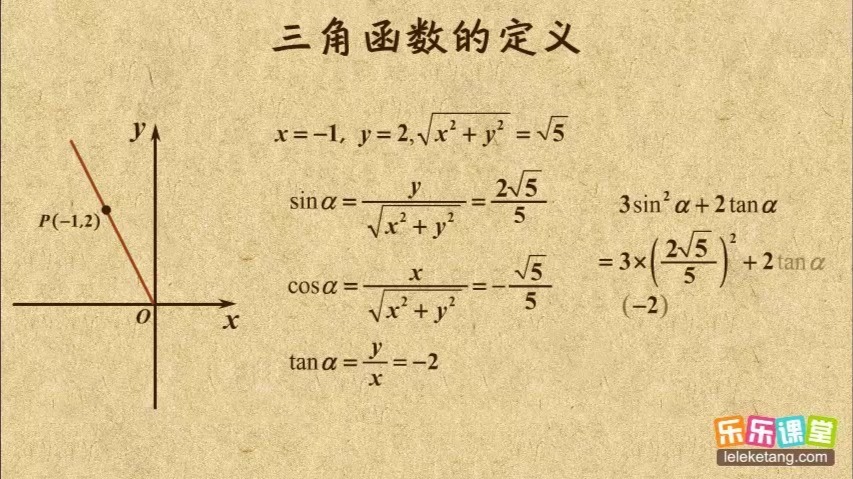 三角函数的定义
y
P(-1,2)
O
x
x = -1, y = 2, √(x² + y²) = √5
sin α = y/√(x² + y²) = 2√5/5
cos α = x/√(x² + y²) = -√5/5
tan α = y/x = -2
3sin² α + 2tan α
= 3×(2√5/5)² + 2tan α
(-2)
乐乐课堂
leleketang.com